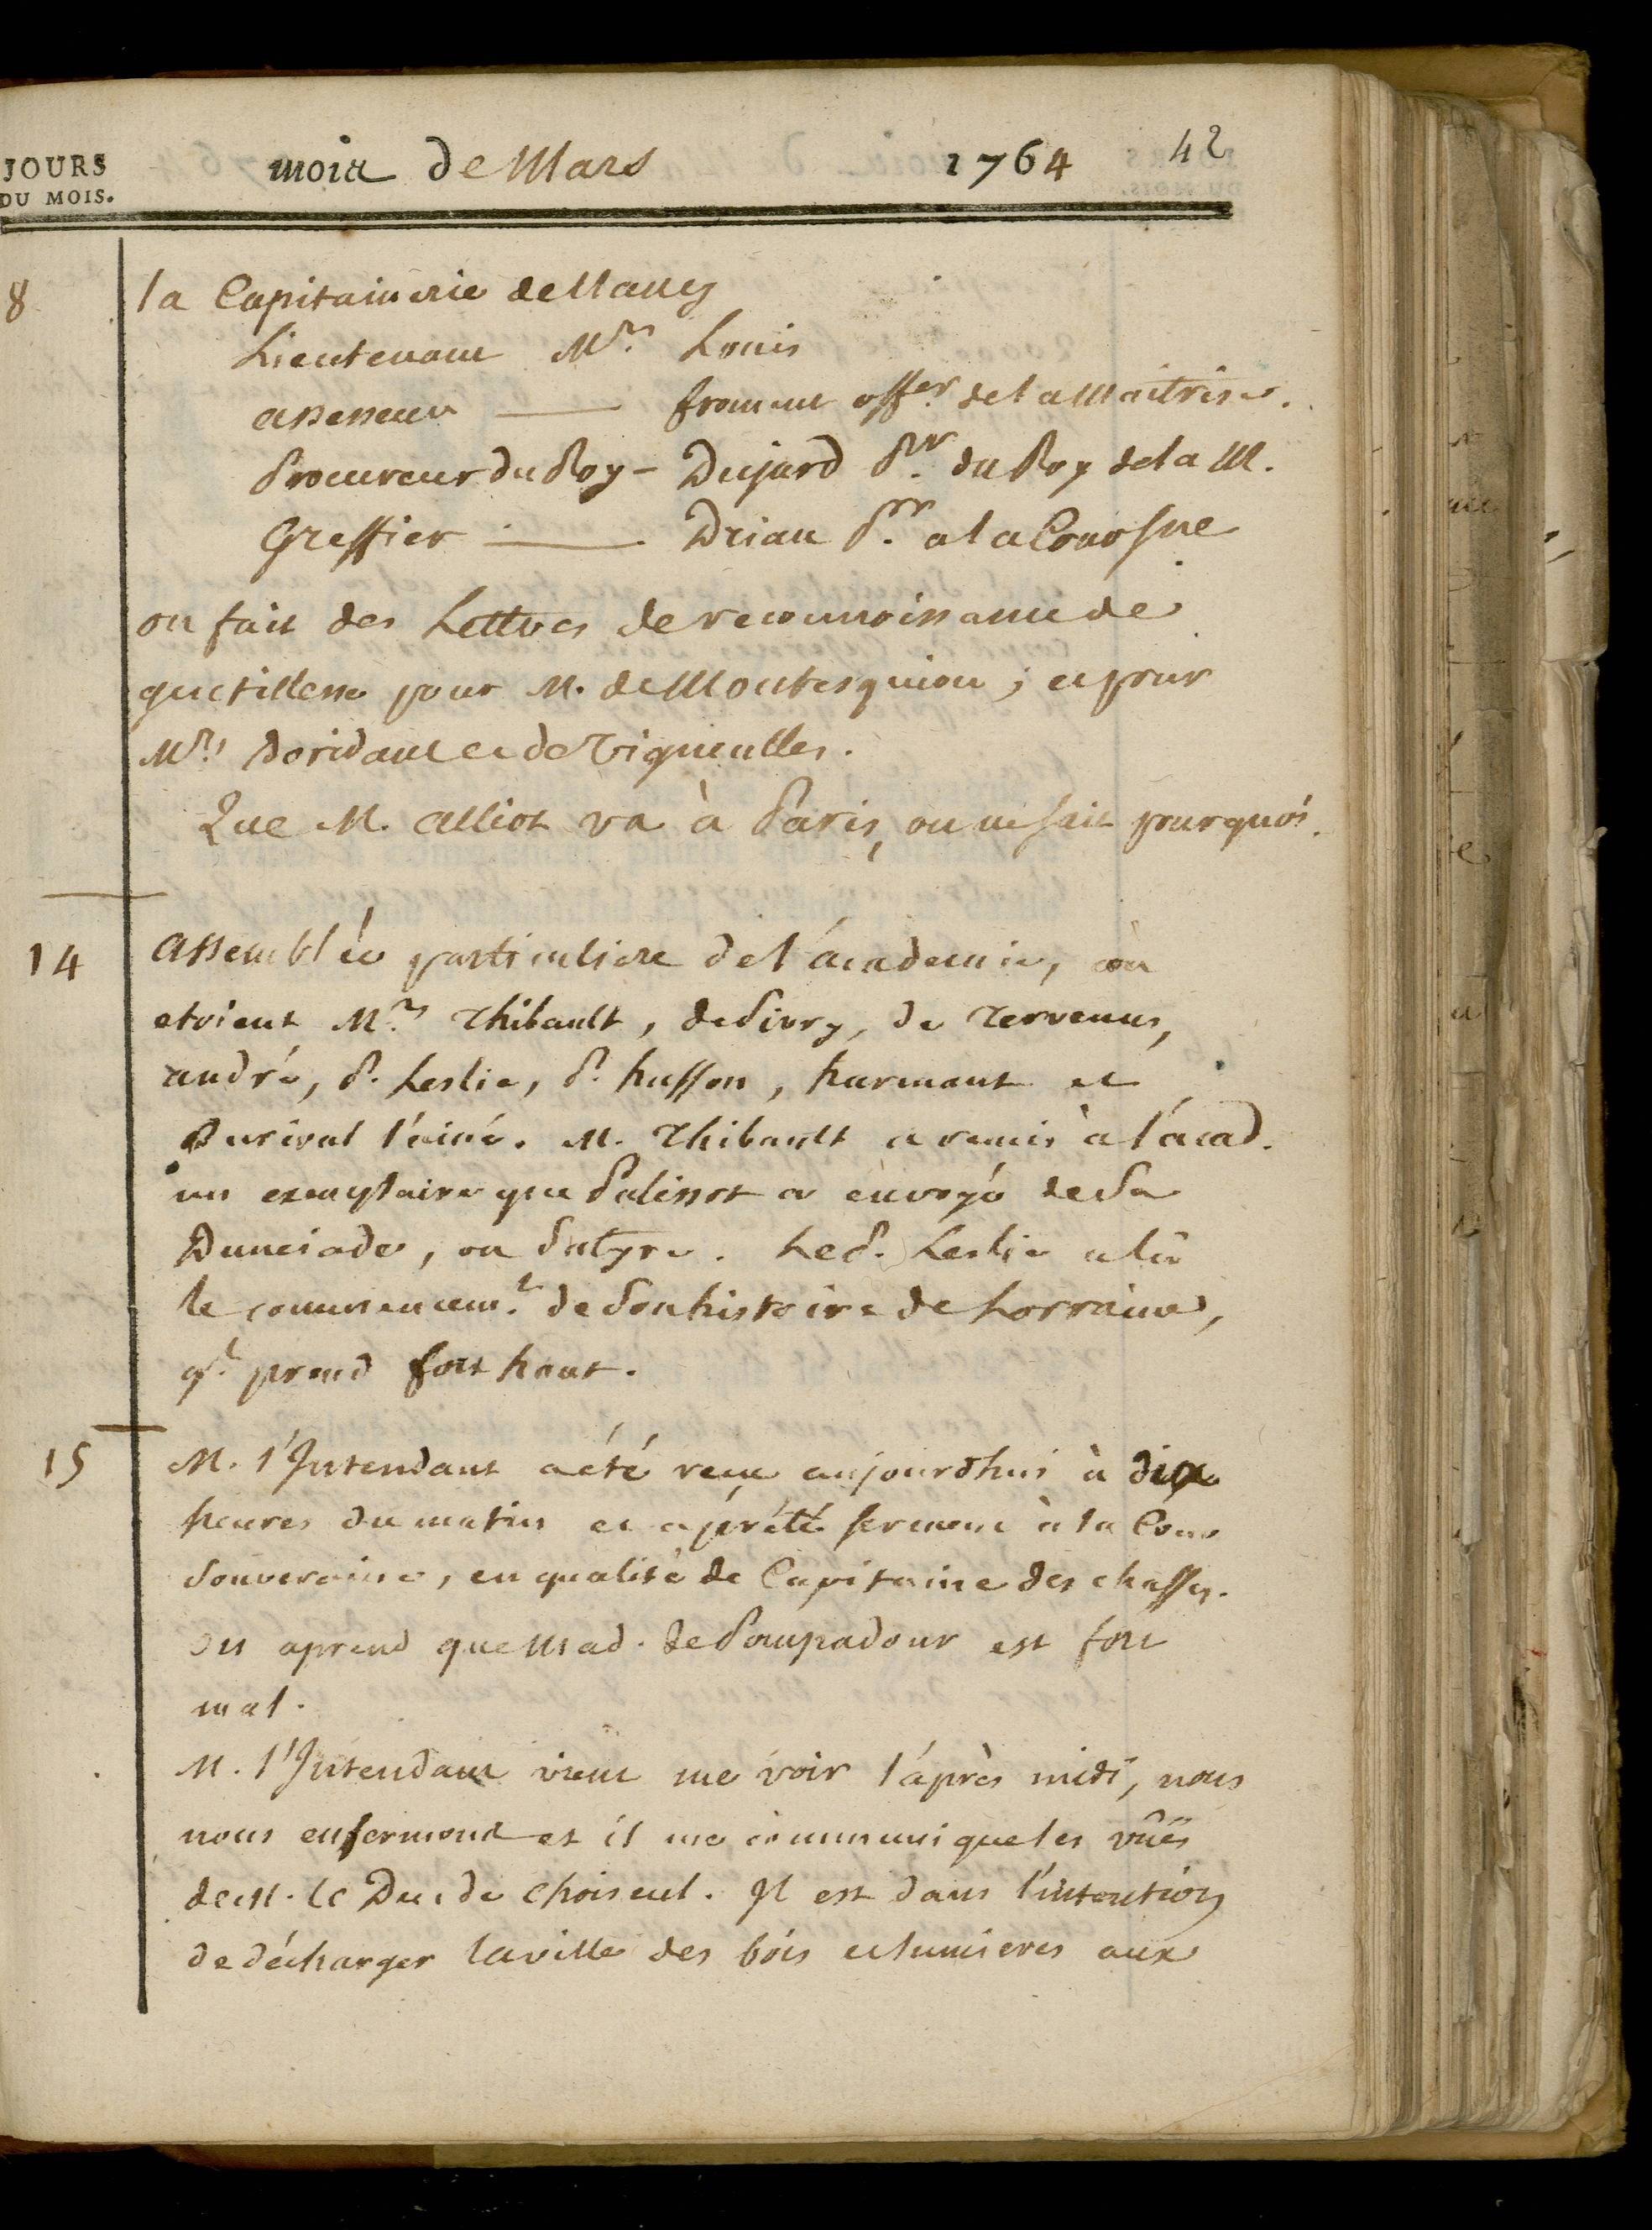 JOURS
DU MOIS.
mois de Mars 1764 42
8 la Capitainerie de Nancy
Lieutenant Mrs. Louis
assesseur — froment offer. de la Maitrise.
Procureur du Roy – Dujard Pr. du Roy de la M.
Greffier — Drian Pr. a la Cour sne
on fait des Lettres de reconnoissance de
gentillesse pour M. de Montesquiou ; et pour
Mrs. doridant et de Vigneulles.
Que M. Alliot va à Paris, on ne sait pourquoi.
14 assemblée particuliere de l'académie, où
etoient Mrs. Thibault, de Sivry, de Tervenus,
andré, P. Leslie, P. husson, harmant et
Durival l'ainé. M. Thibault a remis à l'acad.
un exemplaire que Palissot a envoyé de Sa
Dunciade, ou Satyre. Le P. Leslie a lu
le commencemt. de Son histoire de Lorraine,
ql. prend fort haut.
15 M. l'Intendant a été reçu aujourdhui à dix
heures du matin et a prété serment à la Cour
Souveraine, en qualité de Capitaine des chasses.
On aprend que Mad. de Pompadour est fort
mal.
M. l'Intendant vient me voir l'après midi, nous
nous enfermons et il me communique les vûës
de M. le Duc de Choiseul. Il est dans l'intention
de décharger la ville des bois et lumieres aux